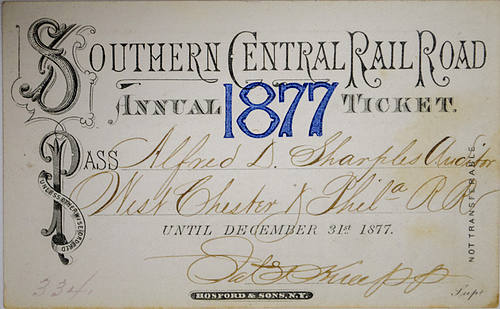 SOUTHERN CENTRAL RAIL ROAD
ANNUAL 1877 TICKET.
PASS Alfred D. Sharples Auditor
UNLESS OTHERWISE ORDERED
West Chester & Phil.a R.R.
NOT TRANSFERABLE
UNTIL DECEMBER 31st 1877.
334.
Supt
HOSFORD & SONS, N.Y.